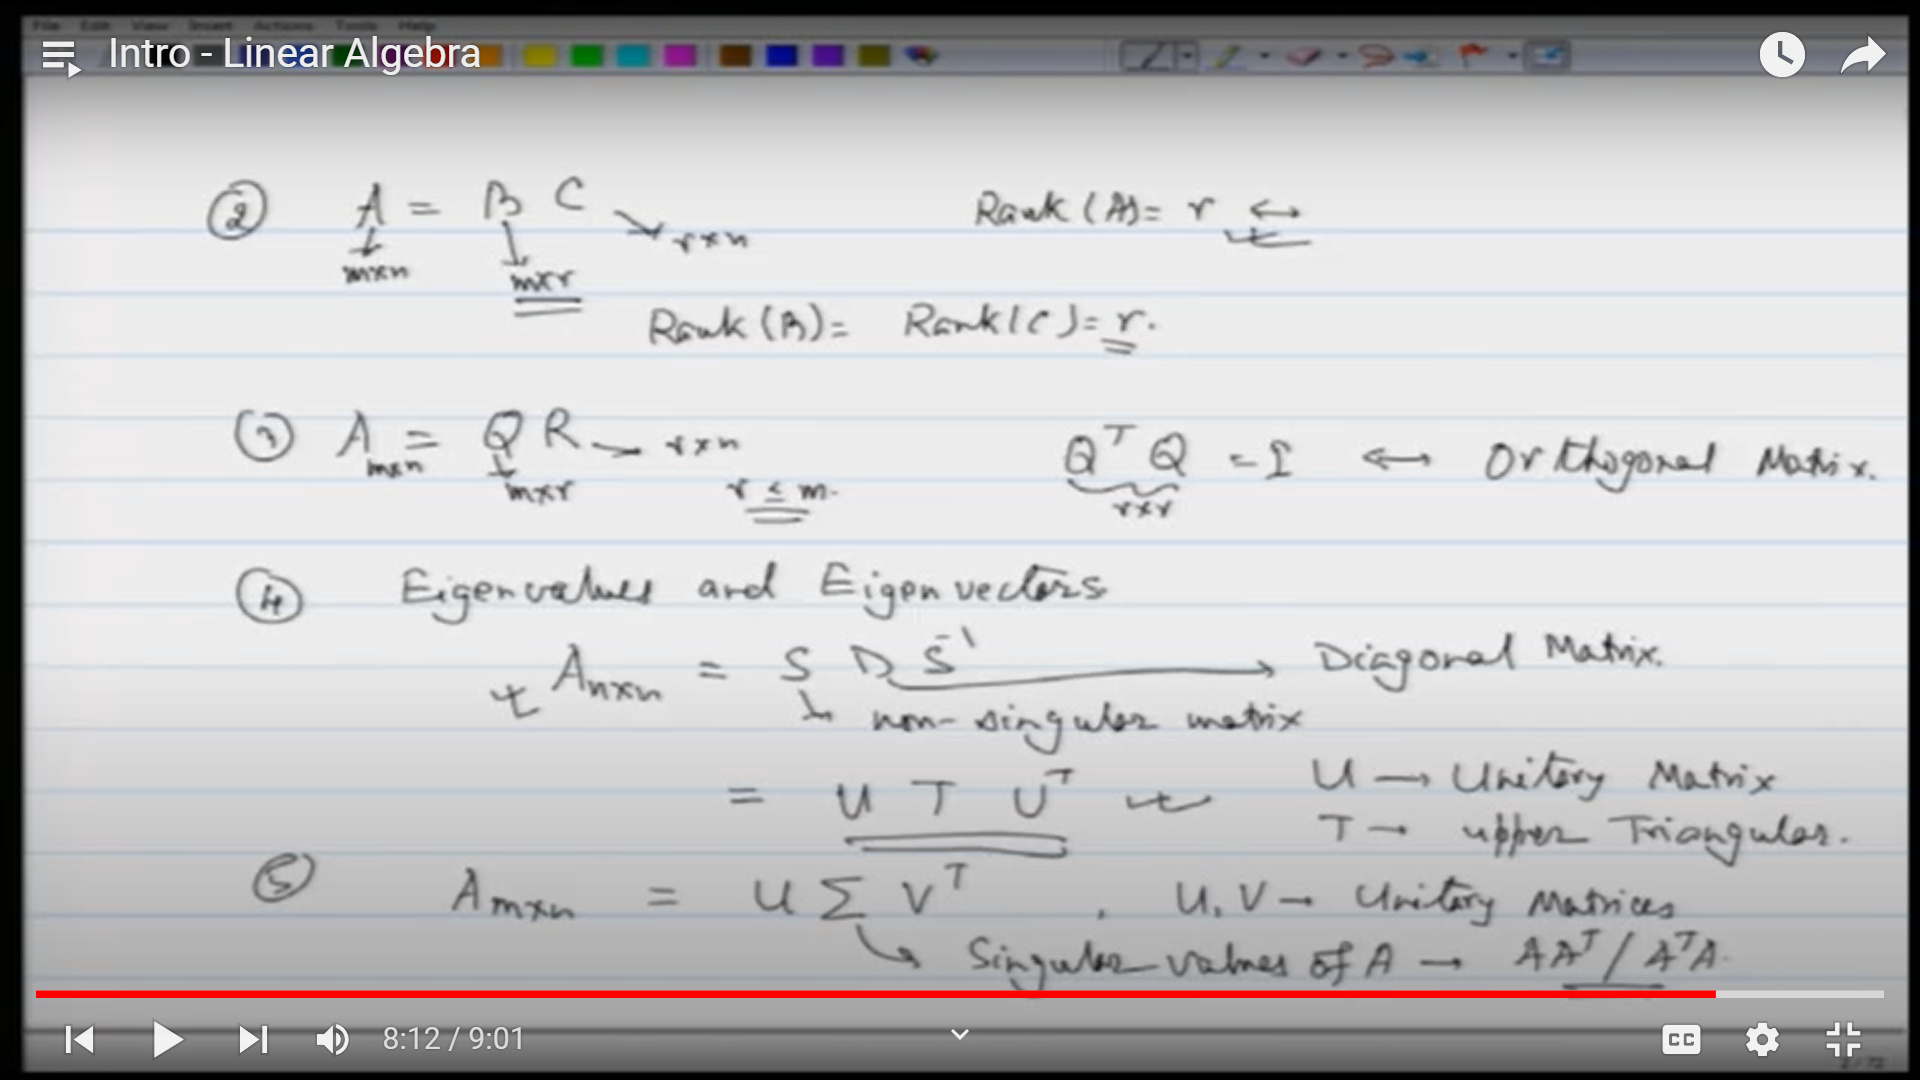 File Edit View Insert Actions Tools Help
Intro - Linear Algebra
② A = B C Rank (A) = r ↔
r×n
m×n m×r
Rank (B) = Rank (C) = r.
③ A m×n = Q R → r×n QᵀQ = I ↔ Orthogonal Matrix.
m×r r ≤ m. r×r
④ Eigenvalues and Eigenvectors
A n×n = S D S⁻¹ → Diagonal Matrix.
non-singular matrix
= U T Uᵀ U → Unitary Matrix
T → upper Triangular.
⑤ A m×n = U Σ Vᵀ , U, V → Unitary Matrices
Singular values of A → AAᵀ / AᵀA.
8:12 / 9:01 CC